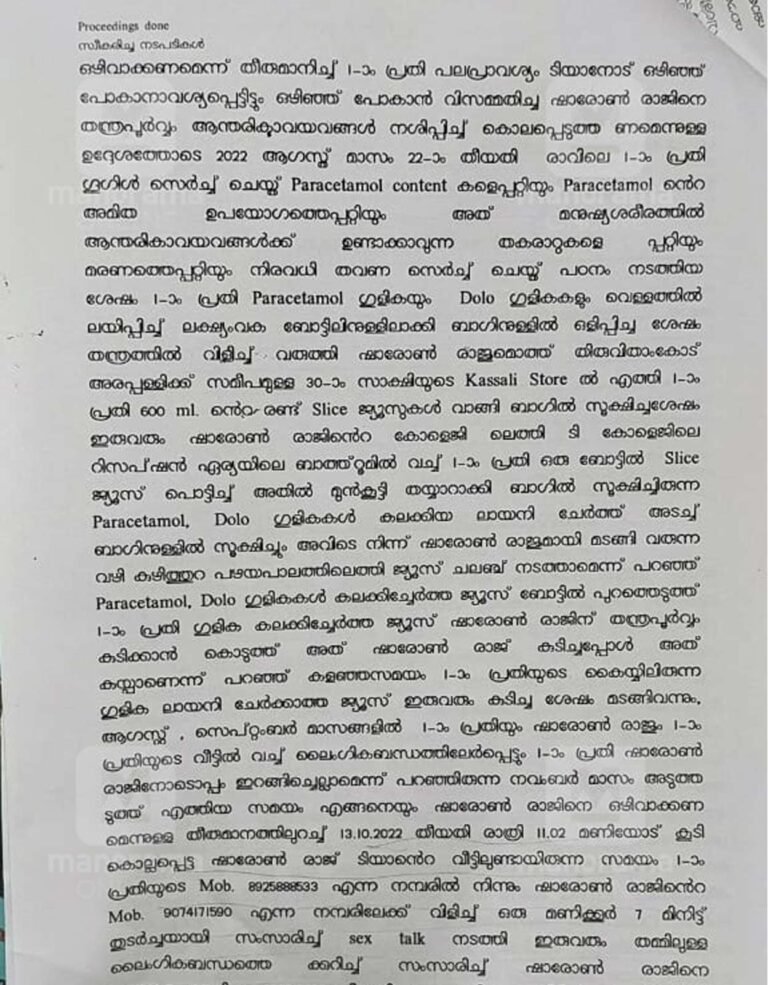 Proceedings done
സ്വീകരിച്ച നടപടികൾ
ഒഴിവാക്കണമെന്ന് തീരുമാനിച്ച് 1-ാം പ്രതി പലപ്രാവശ്യം ടിയാനോട് ഒഴിഞ്ഞ്
പോകാനാവശ്യപ്പെട്ടിട്ടും ഒഴിഞ്ഞ് പോകാൻ വിസമ്മതിച്ച ഷാരോൺ രാജിനെ
തന്ത്രപൂർവ്വം ആന്തരികാവയവങ്ങൾ നശിപ്പിച്ച് കൊലപ്പെടുത്ത ണമെന്നുള്ള
ഉദ്ദേശത്തോടെ 2022 ആഗസ്റ്റ് മാസം 22-ാം തീയതി രാവിലെ 1-ാം പ്രതി
ഗൂഗിൾ സെർച്ച് ചെയ്ത് Paracetamol content കളെപ്പറ്റിയും Paracetamol ൻെറ
അമിത ഉപയോഗത്തെപ്പറ്റിയും അത് മനുഷ്യശരീരത്തിൽ
ആന്തരികാവയവങ്ങൾക്ക് ഉണ്ടാക്കാവുന്ന തകരാറുകളെ പ്പറ്റിയും
മരണത്തെപ്പറ്റിയും നിരവധി തവണ സെർച്ച് ചെയ്ത് പഠനം നടത്തിയ
ശേഷം 1-ാം പ്രതി Paracetamol ഗുളികയും Dolo ഗുളികകളും വെള്ളത്തിൽ
ലയിപ്പിച്ച് ലക്ഷ്യംവക ബോട്ടിലിനുള്ളിലാക്കി ബാഗിനുള്ളിൽ ഒളിപ്പിച്ച ശേഷം
തന്ത്രത്തിൽ വിളിച്ച് വരുത്തി ഷാരോൺ രാജുമൊത്ത് തിരുവിതാംകോട്
അരപ്പള്ളിക്ക് സമീപമുള്ള 30-ാം സാക്ഷിയുടെ Kassali Store ൽ എത്തി 1-ാം
പ്രതി 600 ml. ൻെറ രണ്ട് Slice ജ്യൂസുകൾ വാങ്ങി ബാഗിൽ സൂക്ഷിച്ചശേഷം
ഇരുവരും ഷാരോൺ രാജിൻെറ കോളെജി ലെത്തി ടി കോളെജിലെ
റിസപ്ഷൻ ഏര്യയിലെ ബാത്ത്റൂമിൽ വച്ച് 1-ാം പ്രതി ഒരു ബോട്ടിൽ Slice
ജ്യൂസ് പൊട്ടിച്ച് അതിൽ മുൻകൂട്ടി തയ്യാറാക്കി ബാഗിൽ സൂക്ഷിച്ചിരുന്ന
Paracetamol, Dolo ഗുളികകൾ കലക്കിയ ലായനി ചേർത്ത് അടച്ച്
ബാഗിനുള്ളിൽ സൂക്ഷിച്ചും അവിടെ നിന്ന് ഷാരോൺ രാജുമായി മടങ്ങി വരുന്ന
വഴി കുഴിത്തുറ പഴയപാലത്തിലെത്തി ജ്യൂസ് ചലഞ്ച് നടത്താമെന്ന് പറഞ്ഞ്
Paracetamol, Dolo ഗുളികകൾ കലക്കിച്ചേർത്ത ജ്യൂസ് ബോട്ടിൽ പുറത്തെടുത്ത്
1-ാം പ്രതി ഗുളിക കലക്കിച്ചേർത്ത ജ്യൂസ് ഷാരോൺ രാജിന് തന്ത്രപൂർവ്വം
കുടിക്കാൻ കൊടുത്ത് അത് ഷാരോൺ രാജ് കുടിച്ചപ്പോൾ അത്
കയ്പ്പാണെന്ന് പറഞ്ഞ് കളഞ്ഞസമയം 1-ാം പ്രതിയുടെ കൈയ്യിലിരുന്ന
ഗുളിക ലായനി ചേർക്കാത്ത ജ്യൂസ് ഇരുവരും കുടിച്ച ശേഷം മടങ്ങിവന്നും,
ആഗസ്റ്റ് , സെപ്റ്റംബർ മാസങ്ങളിൽ 1-ാം പ്രതിയും ഷാരോൺ രാജും 1-ാം
പ്രതിയുടെ വീട്ടിൽ വച്ച് ലൈംഗികബന്ധത്തിലേർപ്പെട്ടും 1-ാം പ്രതി ഷാരോൺ
രാജിനോടൊപ്പം ഇറങ്ങിച്ചെല്ലാമെന്ന് പറഞ്ഞിരുന്ന നവംബർ മാസം അടുത്ത
ടുത്ത് എത്തിയ സമയം എങ്ങനെയും ഷാരോൺ രാജിനെ ഒഴിവാക്കണ
മെന്നുള്ള തീരുമാനത്തിലുറച്ച് 13.10.2022 തീയതി രാത്രി 11.02 മണിയോട് കൂടി
കൊല്ലപ്പെട്ട ഷാരോൺ രാജ് ടിയാൻെറ വീട്ടിലുണ്ടായിരുന്ന സമയം 1-ാം
പ്രതിയുടെ Mob. 8925888533 എന്ന നമ്പരിൽ നിന്നും ഷാരോൺ രാജിൻെറ
Mob. 9074171590 എന്ന നമ്പരിലേക്ക് വിളിച്ച് ഒരു മണിക്കൂർ 7 മിനിട്ട്
തുടർച്ചയായി സംസാരിച്ച് sex talk നടത്തി ഇരുവരും തമ്മിലുള്ള
ലൈംഗികബന്ധത്തെ ക്കുറിച്ച് സംസാരിച്ച് ഷാരോൺ രാജിനെ